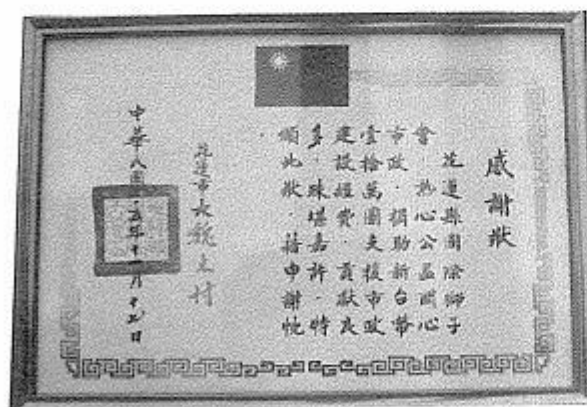 感謝狀
花蓮縣國際獅子
會‧熱心公益關心
市政‧捐助新台幣
壹拾萬圓支援市政
建設經費‧貢獻良
多‧殊堪嘉許‧特
頒此狀‧藉申謝忱
花蓮市長魏木村
中華民國五年十一月十日